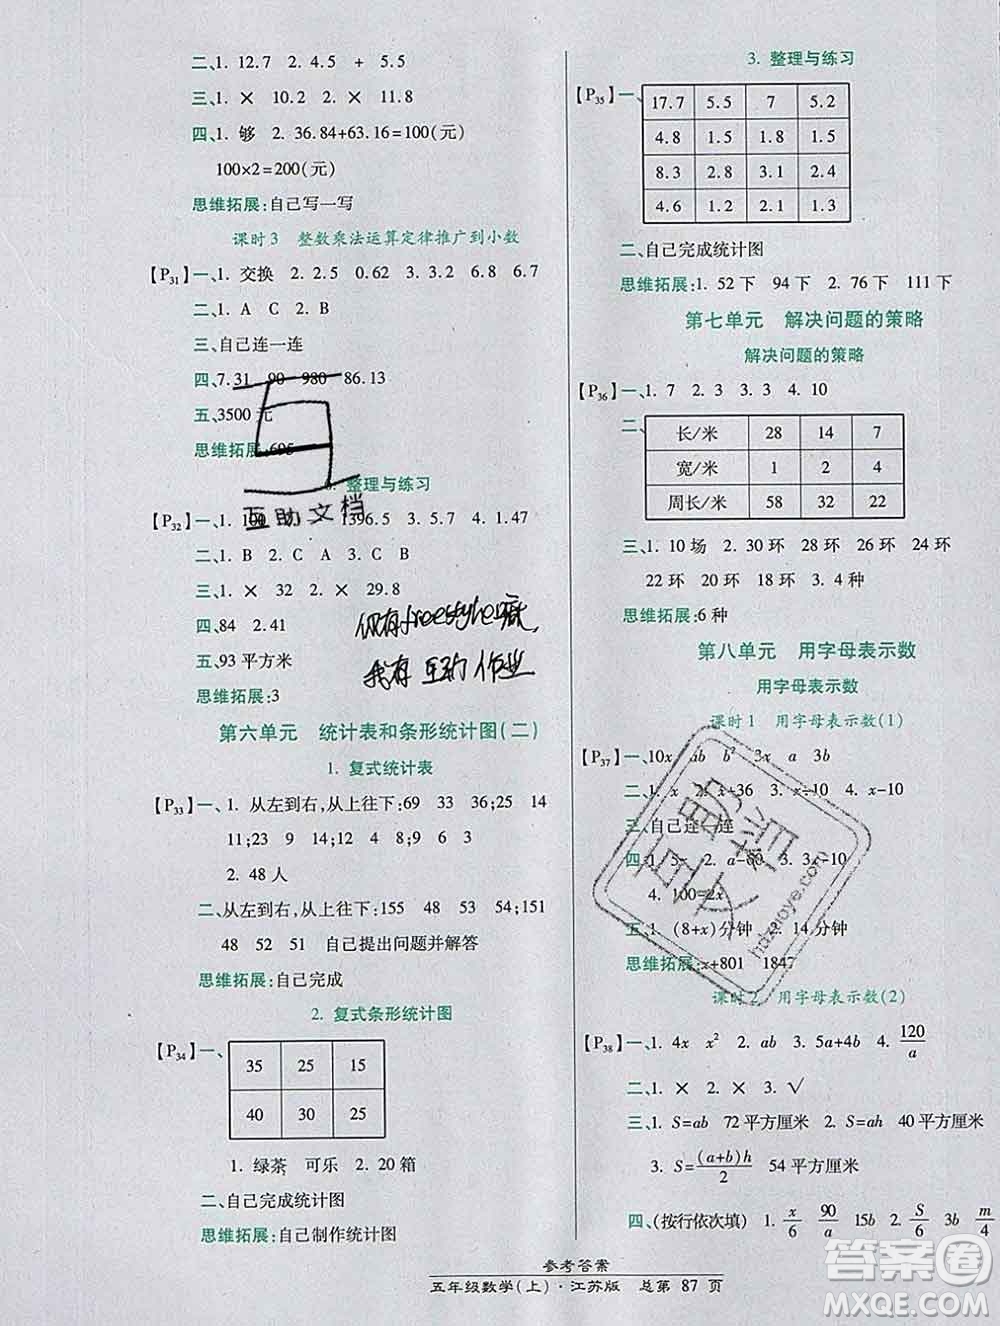 二、1. 12.7 2. 4.5 + 5.5
三、1. × 10.2 2. × 11.8
四、1. 够 2. 36.84+63.16=100(元)
100×2=200(元)
思维拓展:自己写一写
课时3 整数乘法运算定律推广到小数
【P31】一、1. 交换 2. 2.5 0.62 3. 3.2 6.8 6.7
二、1. A C 2. B
三、自己连一连
四、7.31 90 980 86.13
五、3500 元
思维拓展:695
整理与练习
【P32】一、1. 1396.5 3. 5.7 4. 1.47
二、1. B 2. C A 3. C
三、1. × 32 2. × 29.8
四、84 2.41
五、93 平方米
思维拓展:3
第六单元 统计表和条形统计图(二)
1. 复式统计表
【P33】一、1. 从左到右,从上往下:69 33 36;25 14
11;23 9 14;8 4 4;13 6 7;9 6 3
2. 48 人
二、从左到右,从上往下:155 48 53 54;151
48 52 51 自己提出问题并解答
思维拓展:自己完成
2. 复式条形统计图
【P34】一、
35 25 15
40 30 25
1. 绿茶 可乐 2. 20 箱
二、自己完成统计图
思维拓展:自己制作统计图
3. 整理与练习
【P35】一、
17.7 5.5 7 5.2
4.8 1.5 1.8 1.5
8.3 2.8 3.1 2.4
4.6 1.2 2.1 1.3
二、自己完成统计图
思维拓展:1. 52 下 94 下 2. 76 下 111 下
第七单元 解决问题的策略
解决问题的策略
【P36】一、1. 7 2. 3 3. 3 4. 10
二、
长/米 28 14 7
宽/米 1 2 4
周长/米 58 32 22
三、1. 10 场 2. 30 环 28 环 26 环 24 环
22 环 20 环 18 环 3. 4 种
思维拓展:6 种
第八单元 用字母表示数
用字母表示数
课时1 用字母表示数(1)
【P37】一、10x ac b² 2x 3x a 3b
二、1. x 2. x+36 3. x÷10 4. x-10
三、自己连一连
四、1. 2. a-60 3. x÷10
4. 100=2x
五、1 (8+x)分钟 2. 14 分钟
思维拓展:x+801 1847
课时2 用字母表示数(2)
【P38】一、1. 4x x² 2. ab 3. 5a+4b 4. 120/a
二、1. × 2. × 3. √
三、1. S=ab 72 平方厘米 2. S=ah 40 平方厘米
3. S=(a+b)h/2 54 平方厘米
四、(按行依次填) 1. x/6 90/a 15b 2. S/6 3b m/4
参考答案
五年级数学(上)·江苏版 总第 87 页
互助文档
仅有freestyle
我有 互助 作业
互助文档
hdzuoye.com
答案圈
MXQE.COM